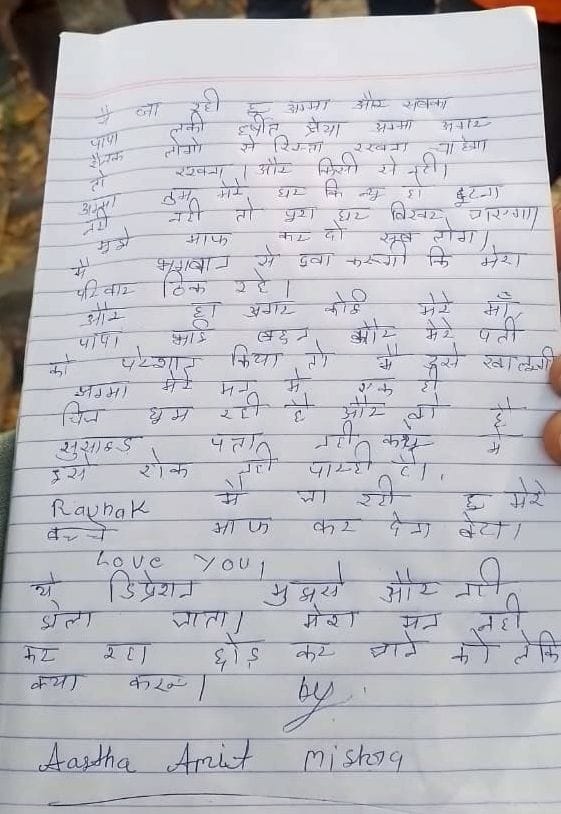 मै जा रही हू अम्मा और सबका
पापा लकी हर्षीत भैया अम्मा अगर
रौनक लोगो से रिस्ता रखना चाहेगा
तो रखना। और किसी से नही।
अम्मा तुम मेरे घर कि न्यु हो टुटना
नही नही तो पुरा घर बिखर जाएगा।
मुझे माफ कर दो सब लोग।
मै भगवान से दुवा करूगी कि मेरा
परिवार ठिक रहे।
और हा अगर कोई मेरे माँ,
पापा भाई बहन और मेरे पती
को परेशान किया तो मै उसे
अम्मा मेरे मन मे एक ही
चिज घुम रही है और वो है
सुसाइड पता नही मै
इसे रोक नही पारही है।
Raunak मै जा रही हू मेरे
बच्चे माफ कर देना बेटा।
Love you,
ये डिप्रेशन मुझसे और नही
झेला जाता। मेरा मन नही
कर रहा छोड़ कर जाने को लेकि
क्या करू।
by.
Aastha Amrit Mishra